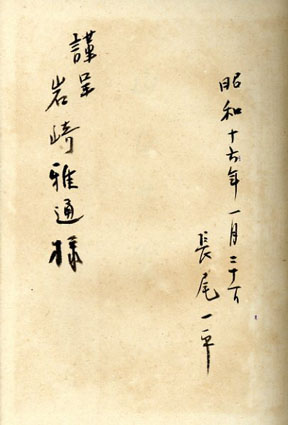 昭和十六年一月二十一日
長尾一平
謹呈
岩崎雅通様